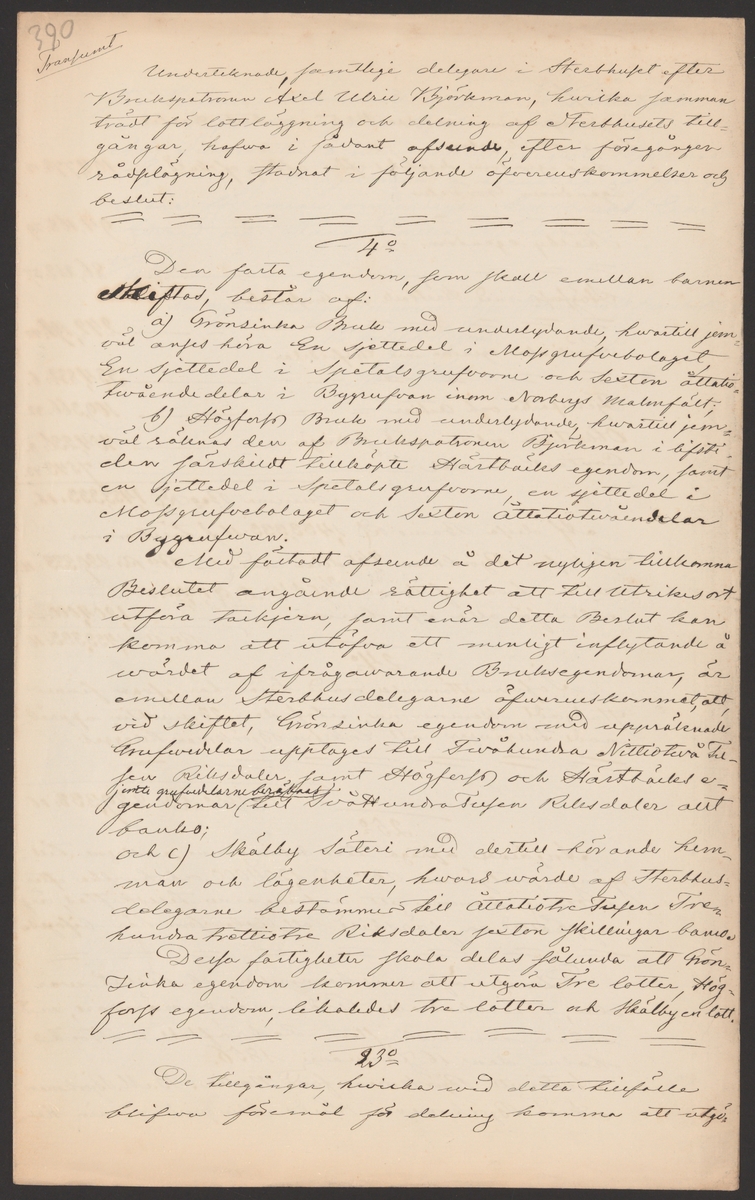 390
Transumt
Undertecknade, samtlige delegare i Sterbhuset efter
Brukspatronen Axel Ulric Björkman, hwilka samman
trädt för lottläggning och delning af Sterbhusets till-
gångar, hafwa i sådant afseende, efter föregången
rådplägning, stadnat i följande öfverenskommelser och
beslut:
4º
Den fasta egendom, som skall emellan barnen
skiftas, består af:
a) Grönsinka Bruk med underlydande, hwartill jem-
väl anses höra En sjettedel i Mossgrufvebolaget,
En sjettedel i Spetalsgrufvorne och Sexton Åttatio-
twåendedelar i Byggrufvan inom Norbergs Malmfält;
b) Högforss Bruk med underlydande, hwartill jem-
väl räknas den af Brukspatronen Björkman i lifsti-
den särskildt tillköpte Hästbäcks egendom, samt
en sjettedel i Spetalsgrufvorne, en sjettedel i
Mossgrufvebolaget och Sexton Åttatiotwåendelar
i Byggrufwan.
Med fästadt afseende å det nyligen tillkomna
Beslutet angående rättighet att till utrikes ort
utföra tackjern, samt enär detta Beslut kan
komma att utöfva ett menligt inflytande å
wärdet af ifrågawarande Bruksegendomar, är
emellan Sterbhusdelegarne öfwerenskommet, att,
vid skiftet, Grönsinka egendom med uppräknade
Grufwedelar upptages till Twåhundra Nittiotwå Tu-
sen Riksdaler, samt Högforss och Hästbäcks e-
jemte grufwedelarne beräknas
gendomar till TvåHundraTusen Riksdaler allt
banko;
och c) Skälby Säteri med dertill hörande hem-
man och lägenheter, hwars wärde af Sterbhus-
delegarne bestämmes till Åttatiotre Tusen Tre-
hundra trettiotre Riksdaler sexton skillingar banco.
Dessa fastigheter skola delas sålunda att Grön-
sinka egendom kommer att utgöra Tre lotter, Hög-
forss egendom, likaledes tre lotter och Skälby en lott.
23º
De tillgångar, hwilka wid detta tillfälle
blifwa föremål för delning komma att utgö-